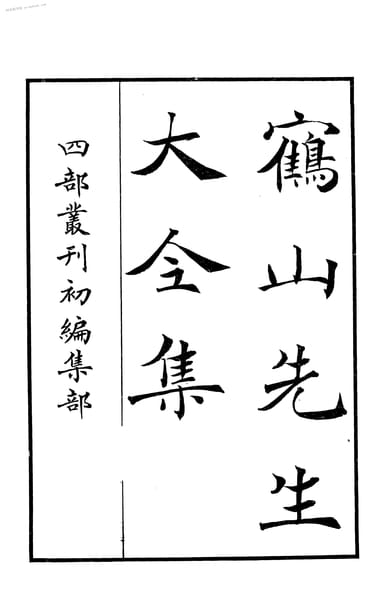 鶴山先生
大全集
四部叢刊初編集部